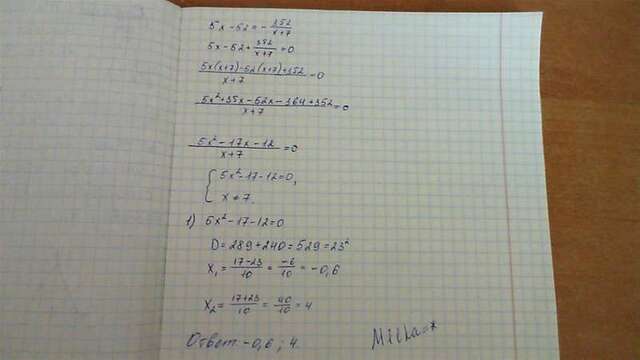 5x-52=-\frac{352}{x+7}
5x-52+\frac{352}{x+7}=0
\frac{5x(x+7)-52(x+7)+352}{x+7}=0
\frac{5x²+35x-52x-364+352}{x+7}=0
\frac{5x²-17x-12}{x+7}=0
5x²-17-12=0,
x≠7.
1) 5x²-17-12=0
D=289+240=529=23²
x₁=\frac{17-23}{10}=\frac{-6}{10}=-0,6
x₂=\frac{17+23}{10}=\frac{40}{10}=4
Ответ: -0,6; 4.